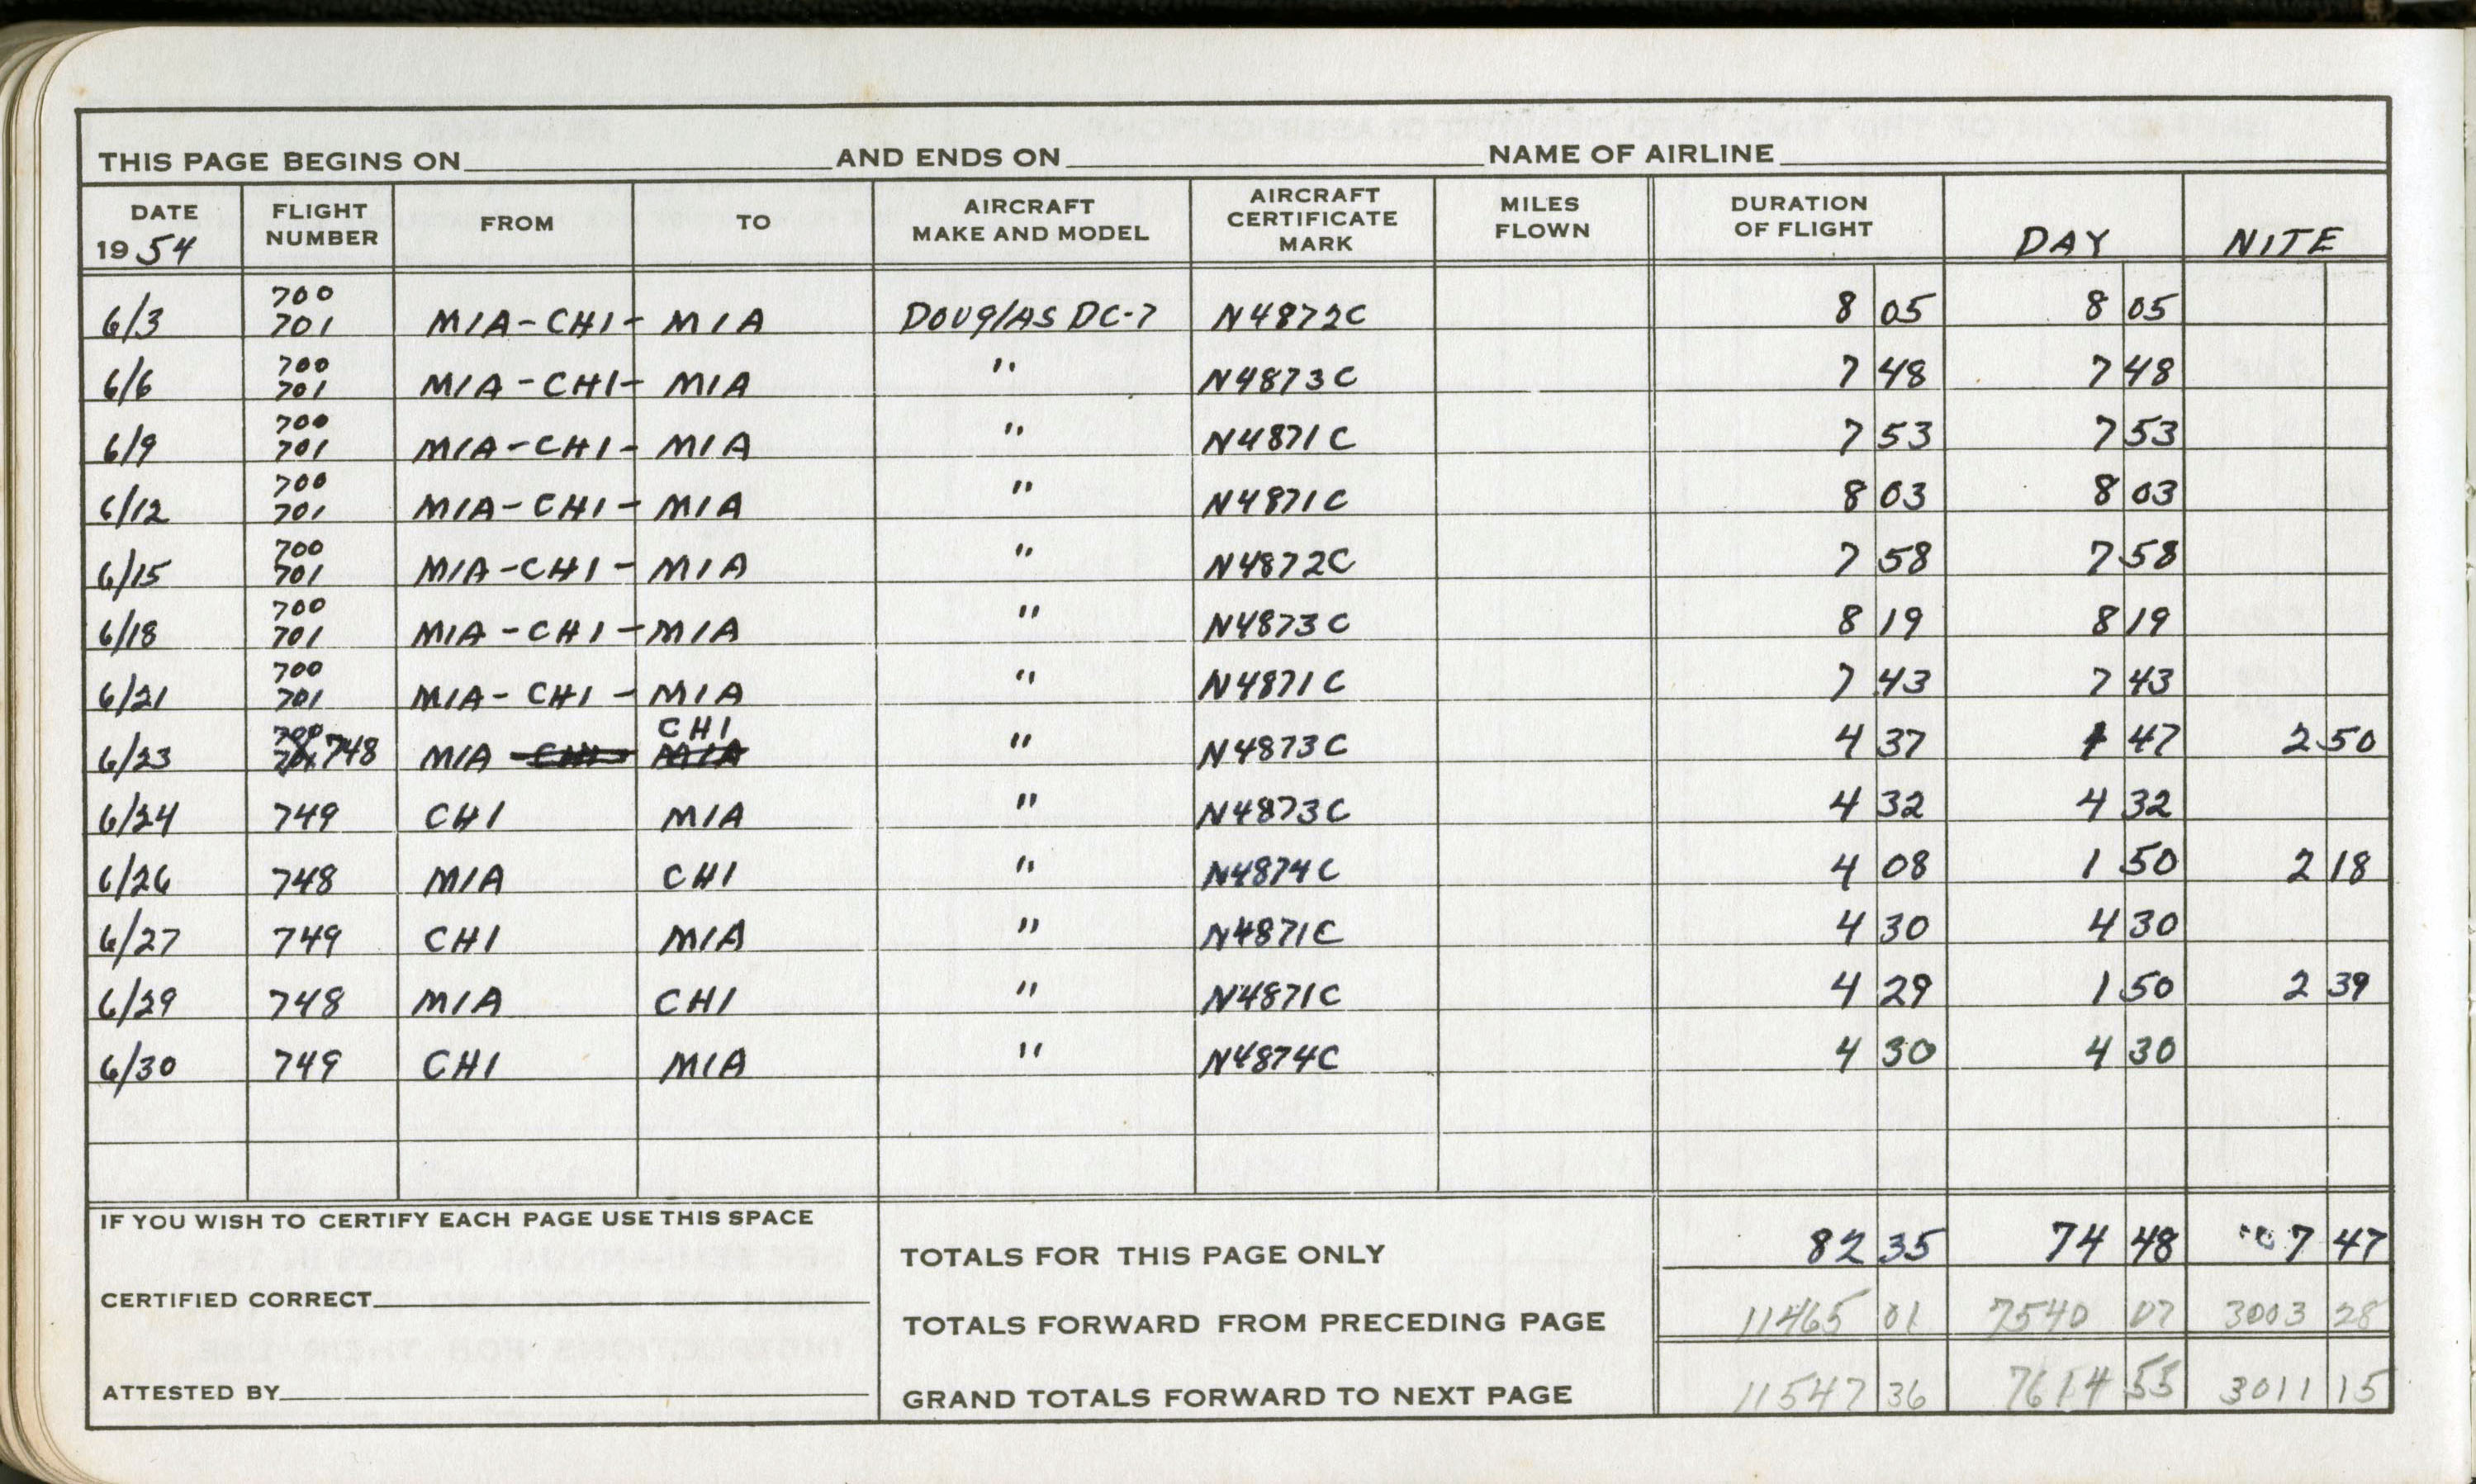 THIS PAGE BEGINS ON AND ENDS ON NAME OF AIRLINE
DATE 1954 FLIGHT NUMBER FROM TO AIRCRAFT MAKE AND MODEL AIRCRAFT CERTIFICATE MARK MILES FLOWN DURATION OF FLIGHT DAY NITE
6/3 700 701 MIA-CHI- MIA DOUGlAS DC-7 N4872C 8 05 8 05
6/6 700 701 MIA-CHI- MIA " N4873C 7 48 7 48
6/9 700 701 MIA-CHI- MIA " N4871C 7 53 7 53
6/12 700 701 MIA-CHI- MIA " N4871C 8 03 8 03
6/15 700 701 MIA-CHI- MIA " N4872C 7 58 7 58
6/18 700 701 MIA-CHI- MIA " N4873C 8 19 8 19
6/21 700 701 MIA-CHI- MIA " N4871C 7 43 7 43
6/23 748 MIA CHI " N4873C 4 37 1 47 2 50
6/24 749 CHI MIA " N4873C 4 32 4 32
6/26 748 MIA CHI " N4874C 4 08 1 50 2 18
6/27 749 CHI MIA " N4871C 4 30 4 30
6/29 748 MIA CHI " N4871C 4 29 1 50 2 39
6/30 749 CHI MIA " N4874C 4 30 4 30
IF YOU WISH TO CERTIFY EACH PAGE USE THIS SPACE
TOTALS FOR THIS PAGE ONLY 82 35 74 48 7 47
CERTIFIED CORRECT
TOTALS FORWARD FROM PRECEDING PAGE 11465 01 7540 07 3003 28
ATTESTED BY
GRAND TOTALS FORWARD TO NEXT PAGE 11547 36 7614 55 3011 15